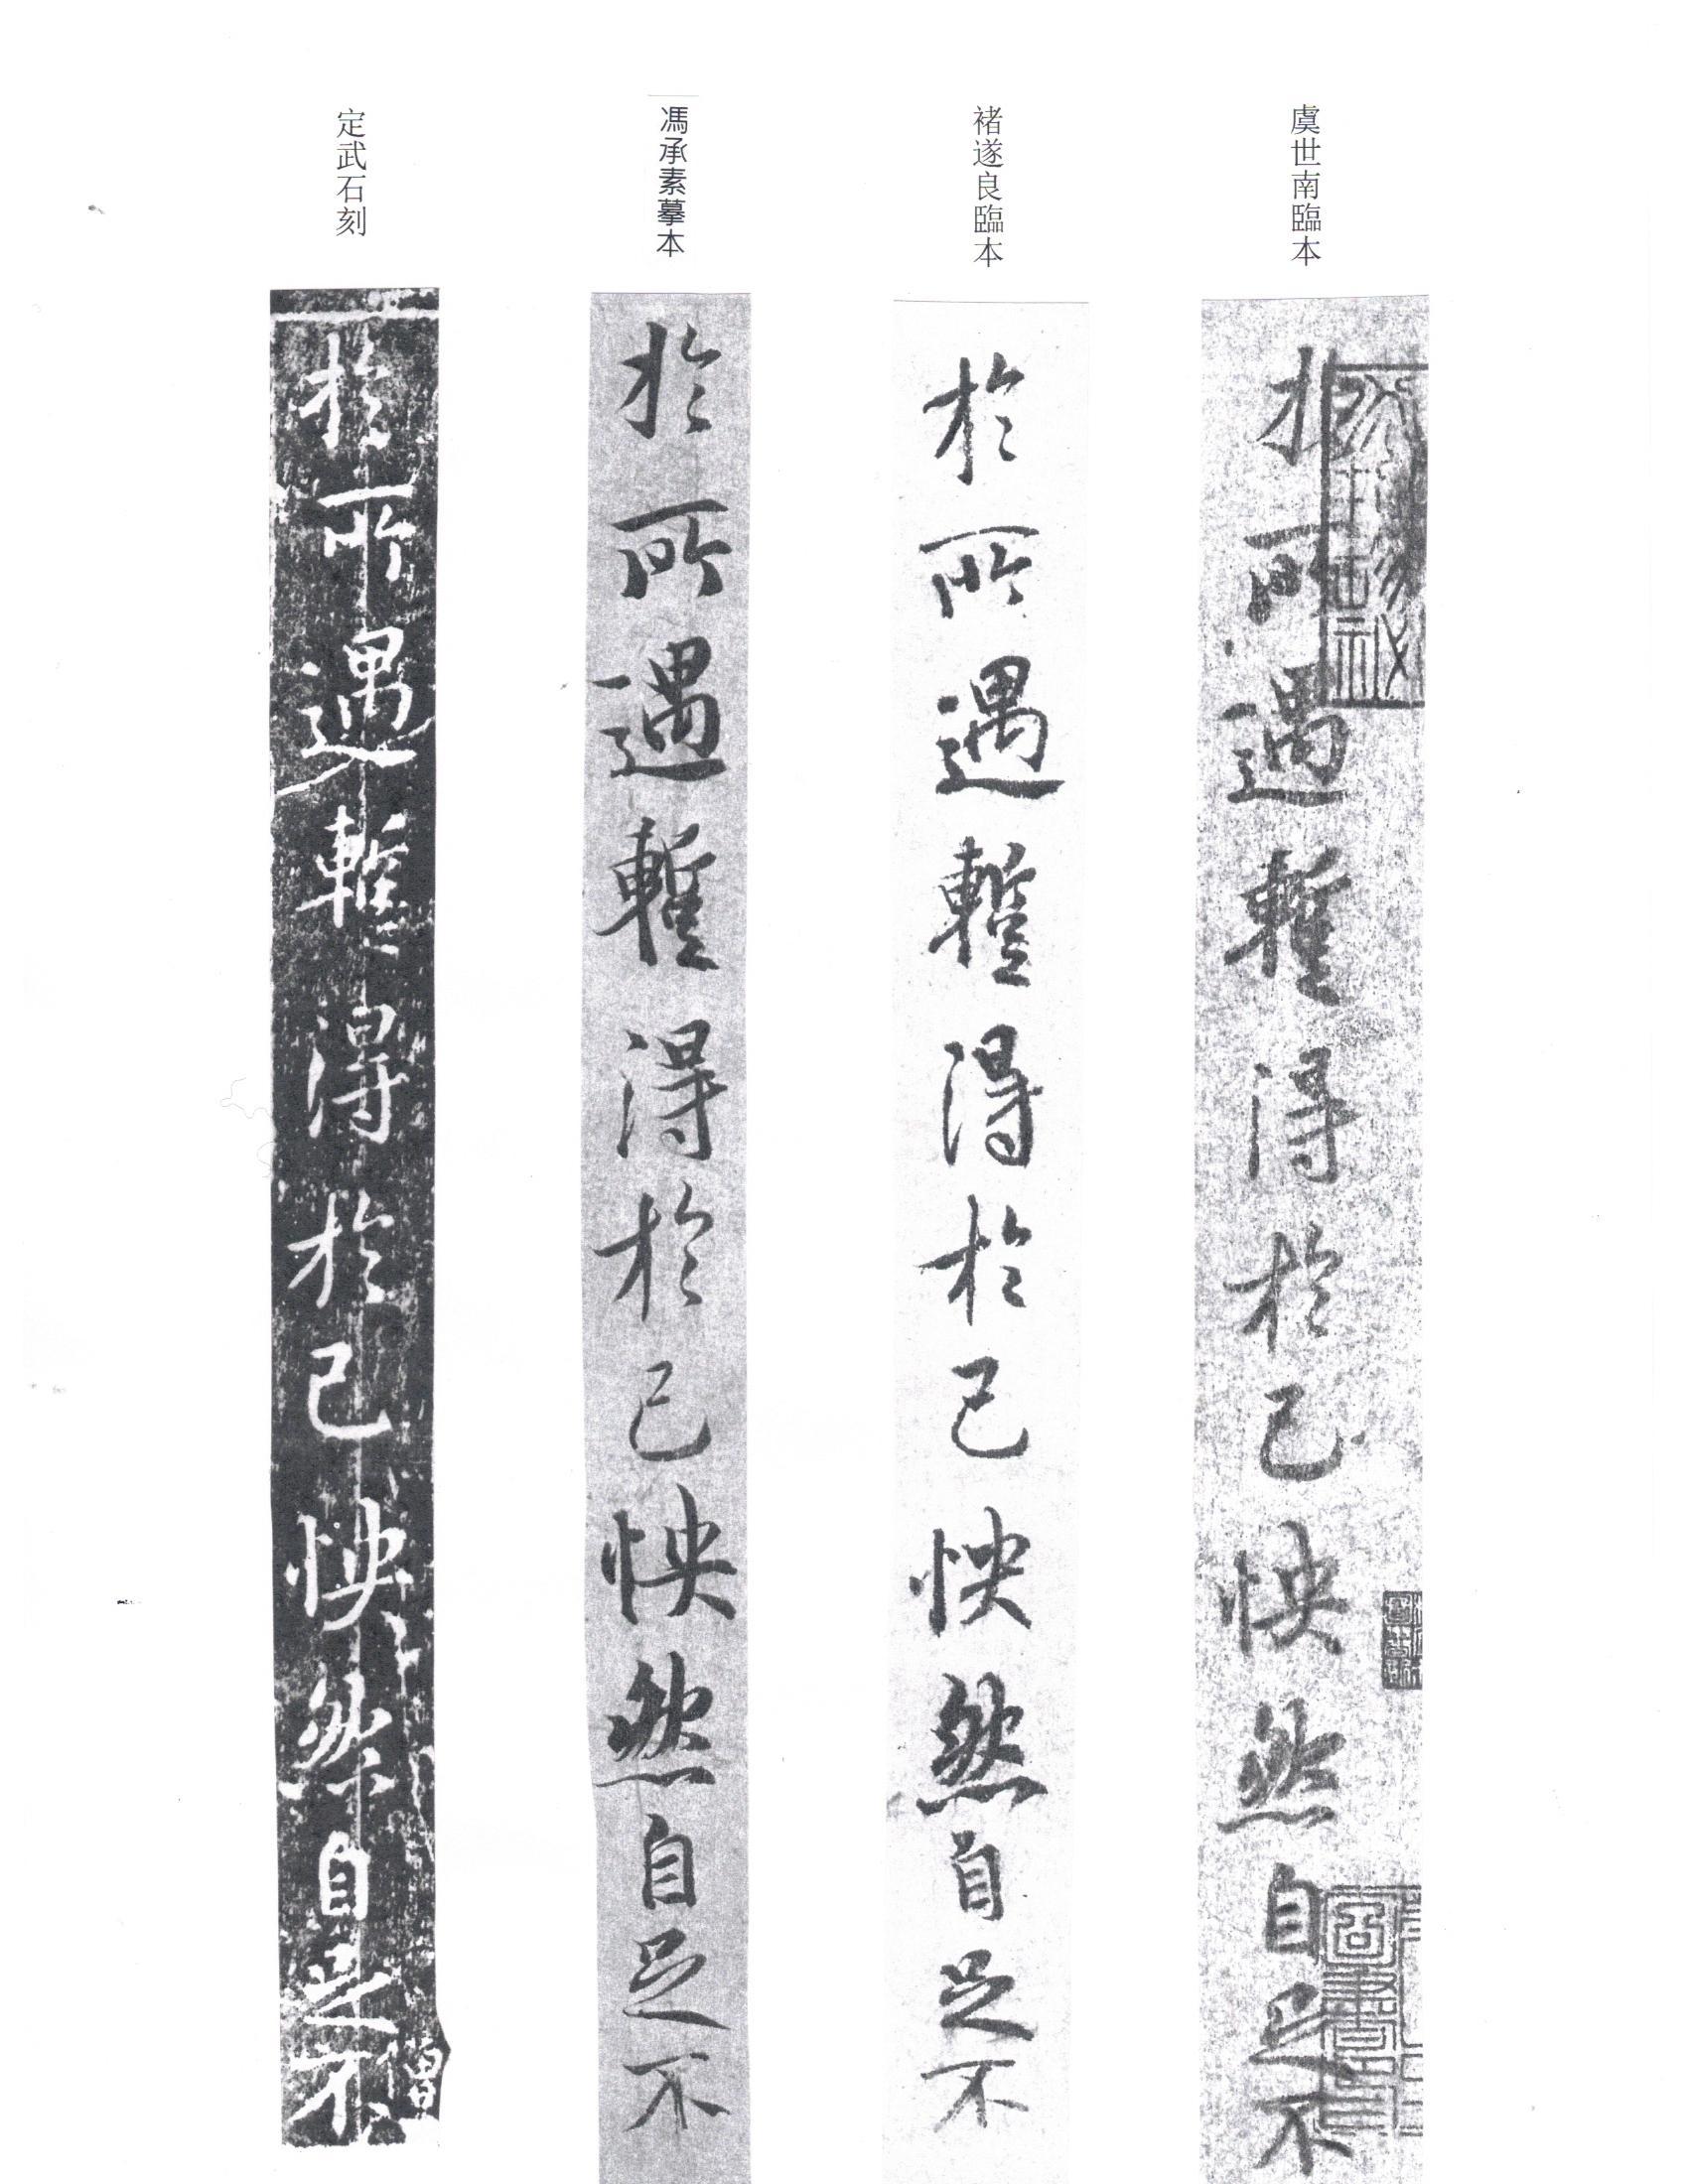 虞世南臨本
於所遇暫得於己怏然自足不
褚遂良臨本
於所遇蹔得於己怏然自足不
馮承素摹本
於所遇蹔得於己怏然自足不
定武石刻
於所遇蹔得於己怏然自足不
僧